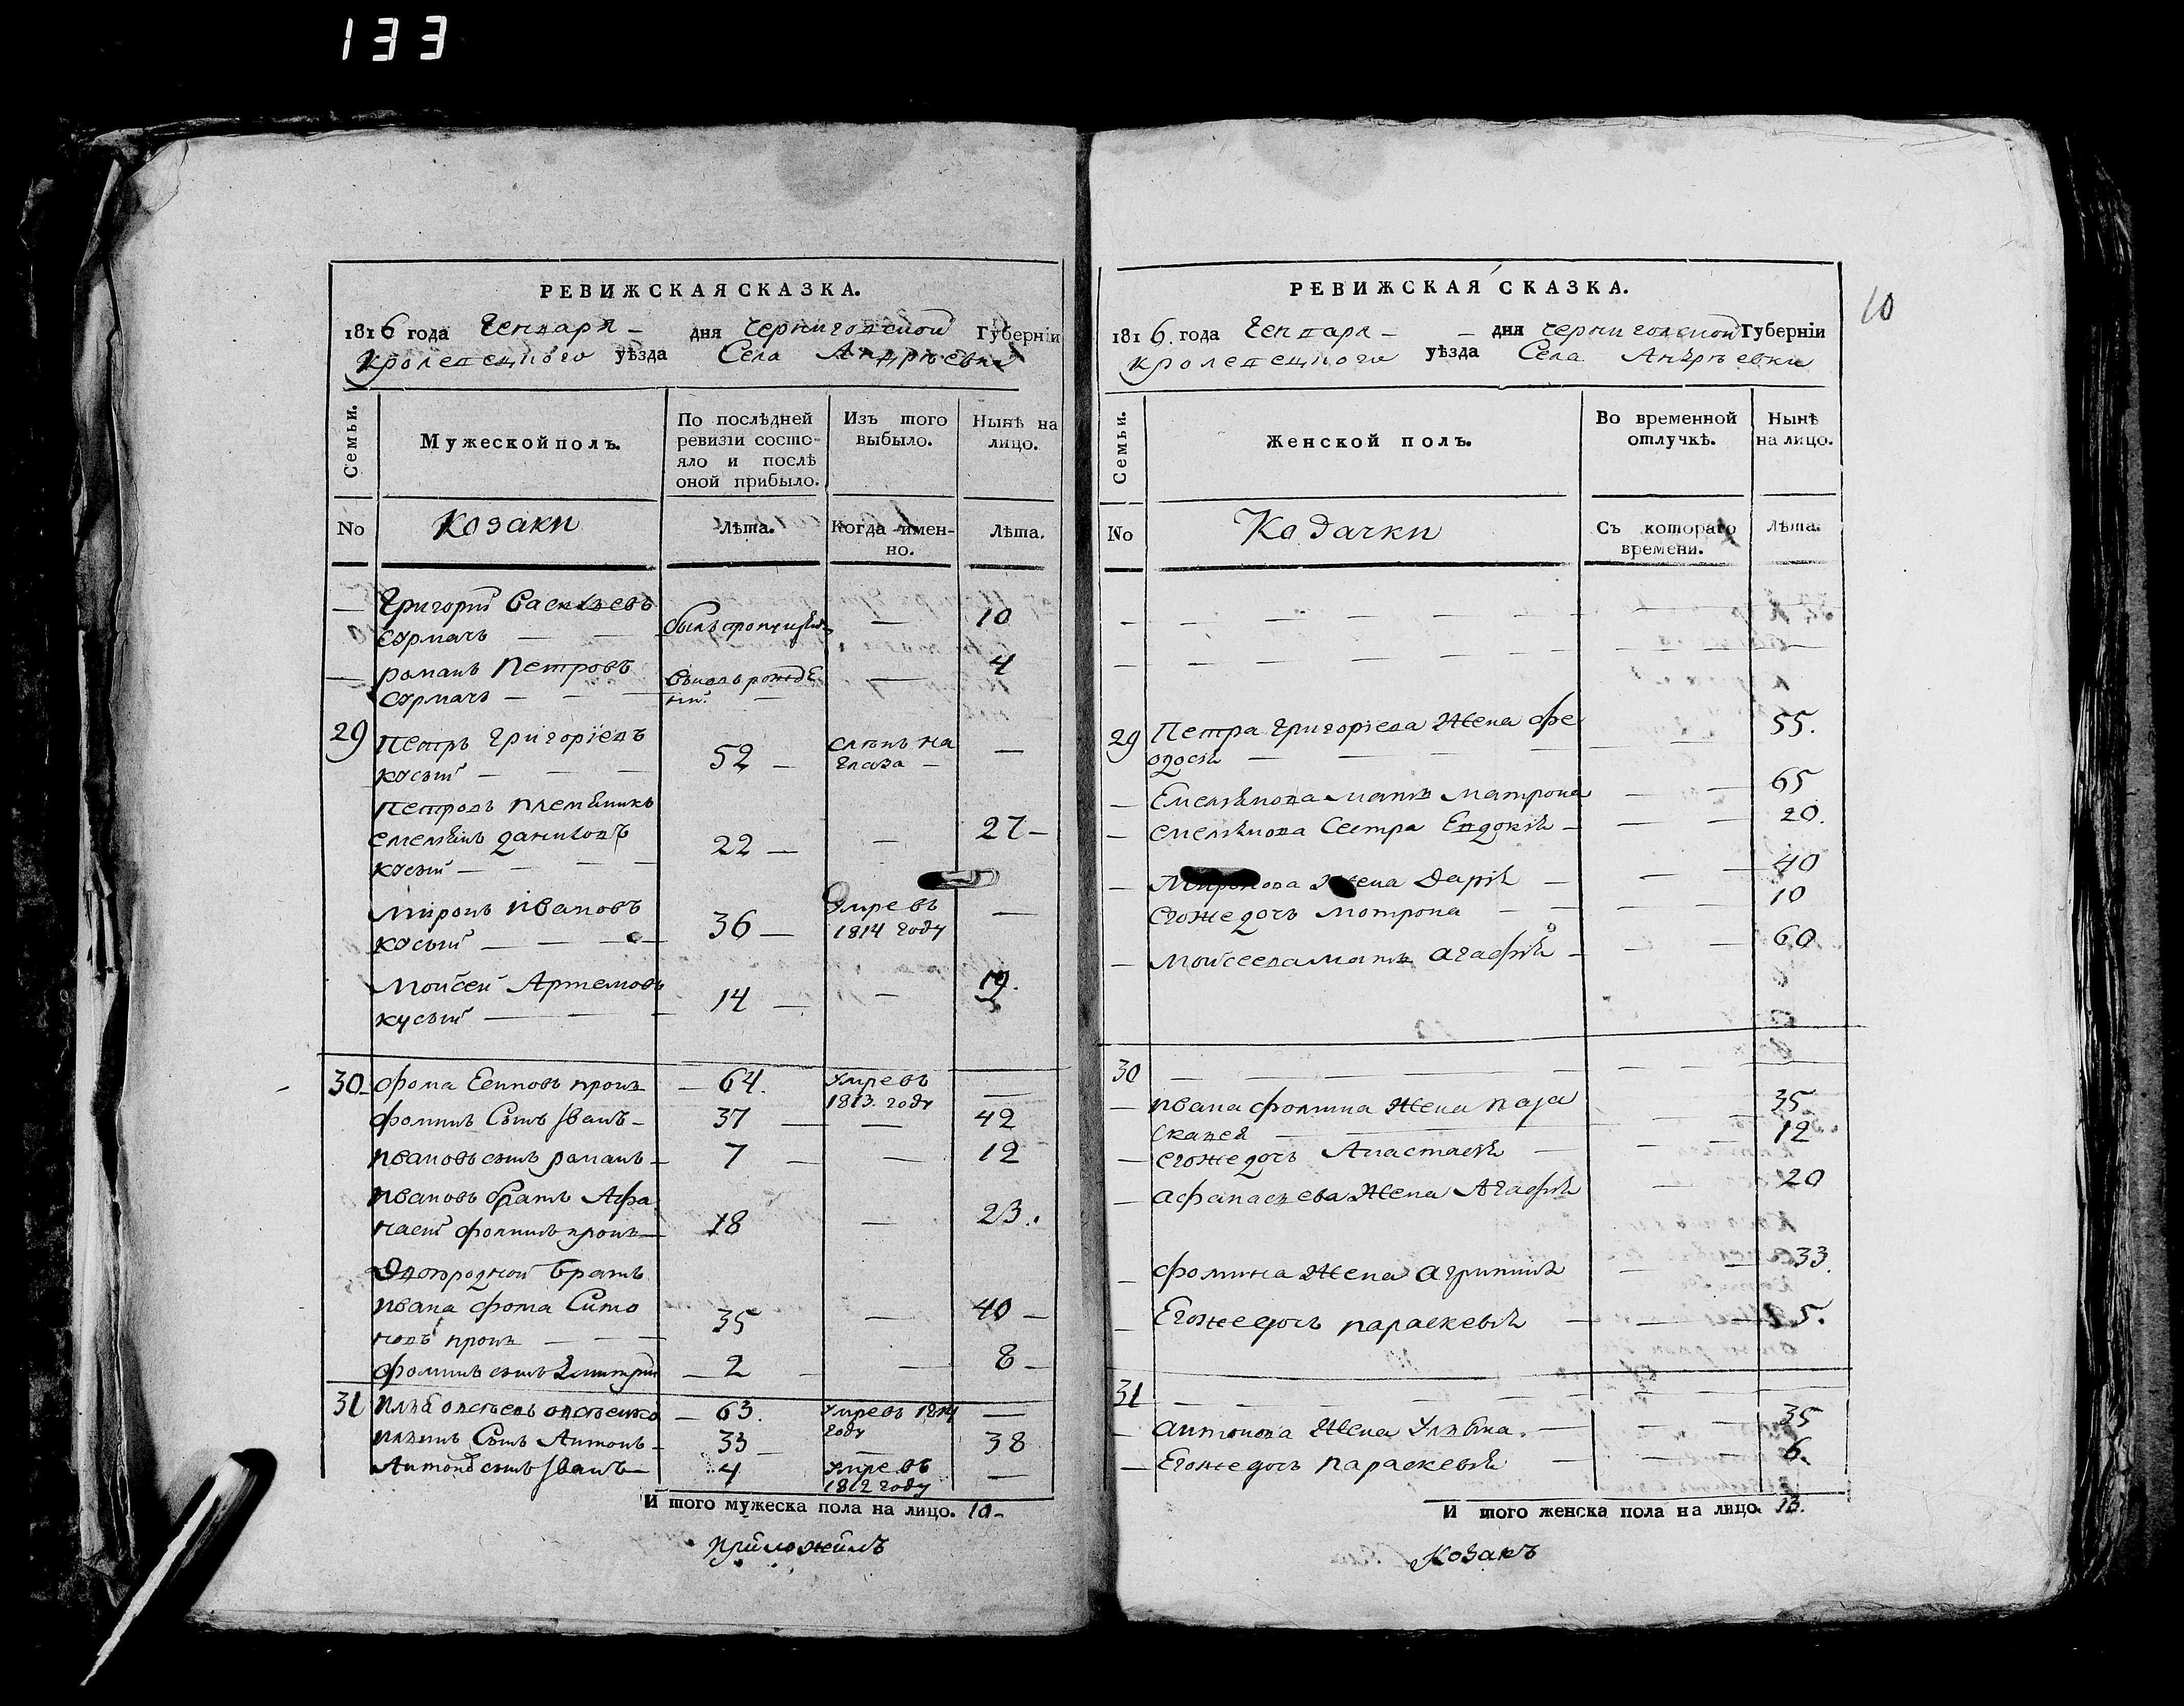 133
РЕВИЖСКАЯ СКАЗКА.
1816 года Генваря - дня Черниговской Губерніи
Кролевецкого уѣзда Села Андрѣевки
Семьи.
Мужеской полъ.
По послѣдней ревизіи состо-
яло и послѣ
оной прибыло.
Изъ того
выбыло.
Нынѣ на
лицо.
No
Козаки
Лѣта.
Когда имен-
но.
Лѣта.
Григорій
Сурмачъ
10
Романъ Петровъ
Сурмачъ
4
29 Петръ Григоріевъ
52
слѣпъ на
глаза
Петровъ племяникъ
22
27
Миронъ Ивановъ
36
Умре въ
1814 году
Моисей Артемовъ
14
19.
30
64.
Умре въ
1813 году
Фоминъ Сынъ Иванъ
37
42
Ивановъ сынъ Романъ
7
12
Ивановъ братъ Афа
насій Фоминъ
18
23.
братъ
Ивана Фома
35
40
Фоминъ сынъ Дмитрій
2
8
31
63.
Умре въ 1814
году
Сынъ Антонъ
33
38
Антоновъ сынъ Иванъ
4
Умре въ
1812 году
И того мужеска пола на лицо. 10
приложилъ
10
РЕВИЖСКАЯ СКАЗКА.
1816 года Генваря - дня Черниговской Губерніи
Кролевецкого уѣзда Села Андрѣевки
Семьи.
Женской полъ.
Во временной
отлучкѣ.
Нынѣ
на лицо.
No
Козачки
Съ котораго
времени.
Лѣта.
29 Петра Григоріева Жена Фе
одосія
55.
Емелянова мать Матрона
65
Емелянова Сестра Евдокія
20.
Миронова Жена Дарія
40
Егоже дочь Мотрона
10
Моисеева мать Агафія
60
30
Ивана Фомина Жена Пара
скавея
35
Егоже дочь Анастасія
12
Афанасиева Жена Агафія
20
Фомина Жена Агрипина
33.
Егоже дочь Параскевія
5.
31
Антонова Жена Уляна
35
Егоже дочь Параскевія
6.
И того женска пола на лицо 13.
Козакъ